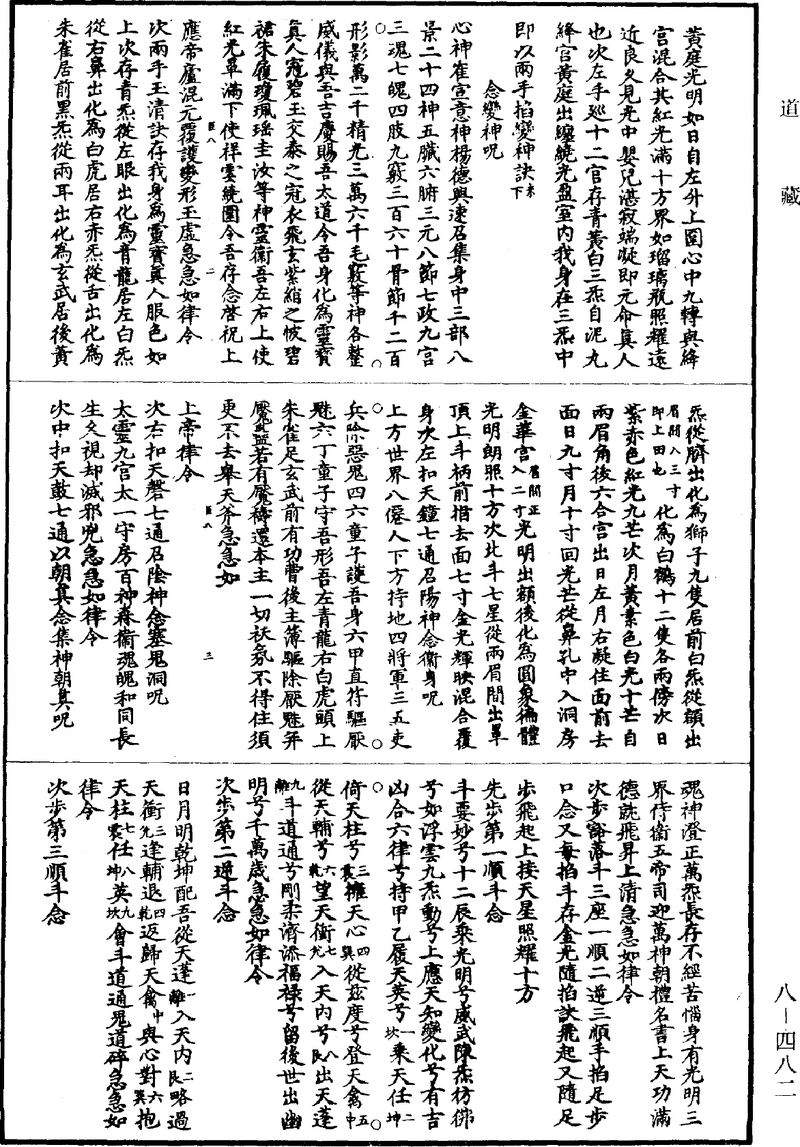 道藏
黃庭光明如日自左外上圍心中九轉與絳
宮混合其紅光滿十方界如瑠璃瓶照耀遠
近良久見光中嬰兒湛寂端凝即元命眞人
也次左手巡十二宮存青黃白三炁自泥丸
絳宮黃庭出纏繞光盈室內我身在三炁中
即以兩手掐變神訣下未
念變神呪
心神崔宣意神楊德興速召集身中三部八
景二十四神五臟六腑三元八節七政九宮
三魂七魄四肢九竅三百六十骨節千二百
形影萬二千精光三萬六千毛竅等神各整
威儀與吾吉慶賜吾大道令吾身化為靈寶
眞人冠碧玉交泰之冠衣飛玄紫綃之帔碧
裙朱履瓊珮瑤圭汝等神靈衛吾左右上使
紅光罩滿下使祥雲繞圍令吾存念啓祝上
應帝廬混元覆護變形玉虛急急如律令
次兩手玉清訣存我身為靈寶眞人服色如
上次存青炁從左眼出化為青龍居左白炁
從右鼻出化為白虎居右赤炁從舌出化為
朱雀居前黑炁從兩耳出化為玄武居後黃
炁從臍出化為獅子九隻居前白炁從額出
眉間入三寸即上田也化為白鶴十二隻各兩傍次日
紫赤色紅光九芒次月黃素色白光十芒自
兩眉角後六合宮出日左月右凝住面前去
面日九寸月十寸回光芒從鼻孔中入洞房
金華宮眉間正入二寸光明出額後化為圓象徧體
光明朗照十方次北斗七星從兩眉間出罩
頂上斗柄前指去面七寸金光輝映混合覆
身次左扣天鐘七通召陽神念衛身呪
上方世界八僊人下方持地四將軍三五吏
兵除惡鬼四六童子護吾身六甲直符驅厭
魅六丁童子守吾形吾左青龍右白虎頭上
朱雀足玄武前有功曹後主簿驅除厭魅并
魘蠱若有魘禱還本主一切祅氛不得住須
更不去舉天斧急急如
上帝律令
次右扣天磬七通召陰神念塞鬼洞呪
太靈九宮太一守房百神森衛魂魄和同長
生久視却滅邪兇急急如律令
次中扣天鼓七通以朝眞念集神朝眞呪
魂神澄正萬炁長存不經苦惱身有光明三
界侍衛五帝司迎萬神朝禮名書上天功滿
德就飛昇上清急急如律令
次步豁落斗三座一順二逆三順手掐足步
口念又每掐斗存金光隨掐訣飛起又隨足
步飛起上接天星照耀十方
先步第一順斗念
斗要妙兮十二辰乘光明兮威武陳炁彷彿
兮如浮雲九炁動兮上應天知變化兮有吉
凶合六律兮持甲乙履天英兮一坎乘天任二坤
倚天柱兮三震擁天心四巽從茲度兮登天禽五中
從天輔兮六乾望天衝七兌入天內兮八艮出天蓬
九離斗道通兮剛柔濟添福祿兮留後世出幽
明兮千萬歲急急如律令
次步第二逆斗念
日月明乾坤配吾從天蓬一離入天內二艮略過
天衝三兌逢輔退四乾返歸天禽中與心對六巽抱
天柱七震任八坤英九坎會斗道通鬼道碎急急如
律令
次步第三順斗念
臣八
二
臣八
三
八-四八二